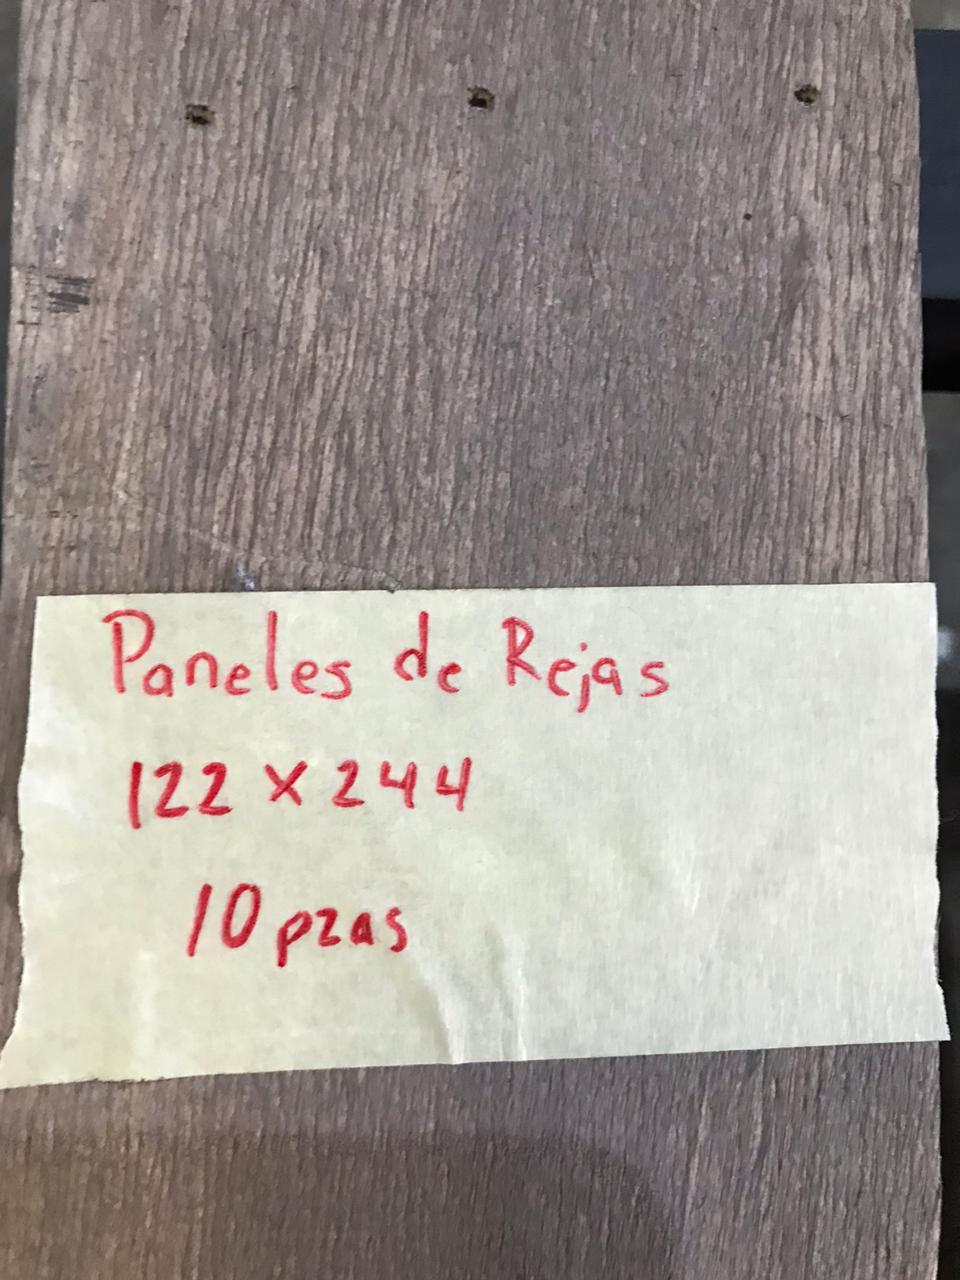 Paneles de Rejas
122 x 244
10 pzas